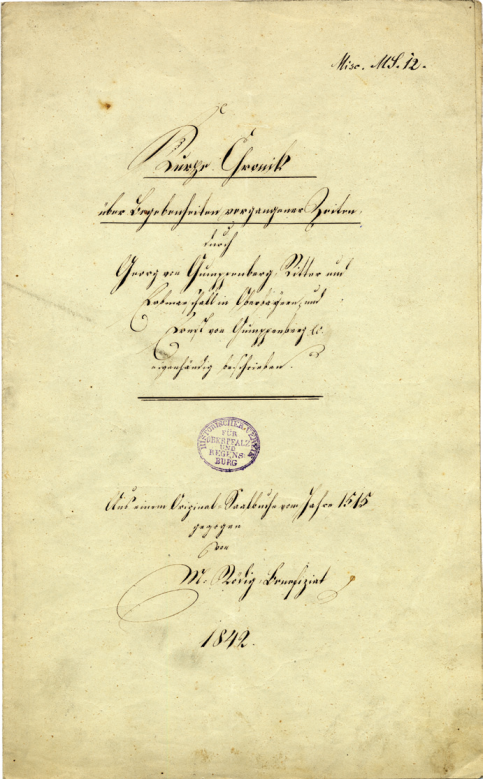 Misc. MS. 12.
Kurze Chronik
über Begebenheiten vergangener Zeiten,
durch
Georg von Gumppenberg, Ritter und
Erbmarschall in Oberbayern, und
von Gumppenberg
eigenhändig beschrieben.
HISTORISCHER VEREIN
FÜR
OBERPFALZ
UND
REGENS-
BURG
Aus einem Original-Saalbuche vom Jahre 1515
gezogen
von
M. Rödig, Benefiziat
1842.